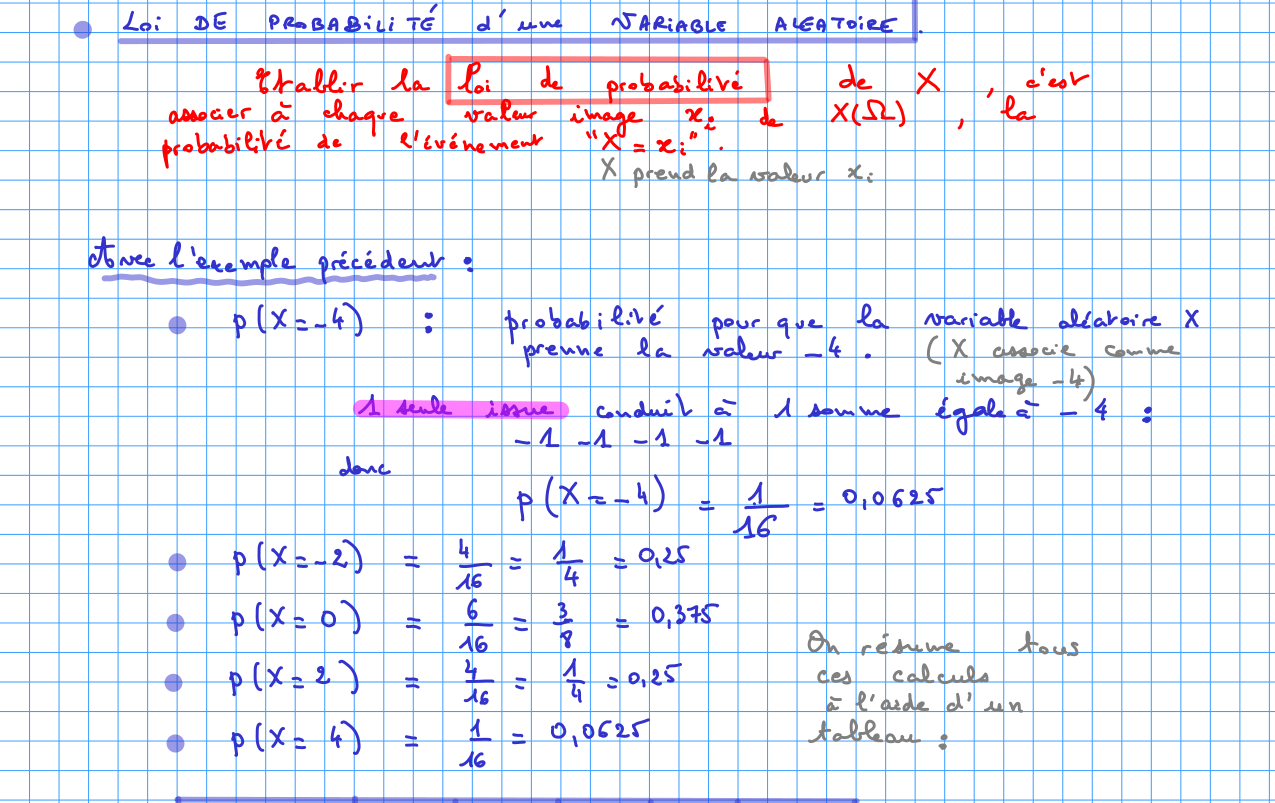 Loi DE PROBABILITÉ d'une VARIABLE ALEATOIRE.
Etablir la loi de probabilité de X, c'est
associer à chaque valeur image xi de X(Ω), la
probabilité de l'événement "X = xi".
X prend la valeur xi
Avec l'exemple précédent :
p(X=-4) : probabilité pour que la variable aléatoire X
prenne la valeur -4. (X associe comme
image -4)
1 seule issue conduit à 1 somme égale à -4 :
-1 -1 -1 -1
donc
p(X=-4) = 1/16 = 0,0625
p(X=-2) = 4/16 = 1/4 = 0,25
p(X=0) = 6/16 = 3/8 = 0,375
p(X=2) = 4/16 = 1/4 = 0,25
p(X=4) = 1/16 = 0,0625
On résume tous
ces calculs
à l'aide d'un
tableau :